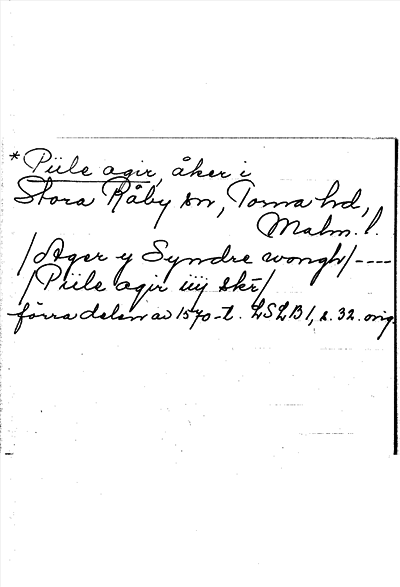 *Piile agir, åker i
Stora Råby sn, Torna hd,
Malm. l.
/Ager y Syndre wongh/----
/Piile agir iiij skr/
förra delen av 1570-t. LSLB 1, s. 32. orig.